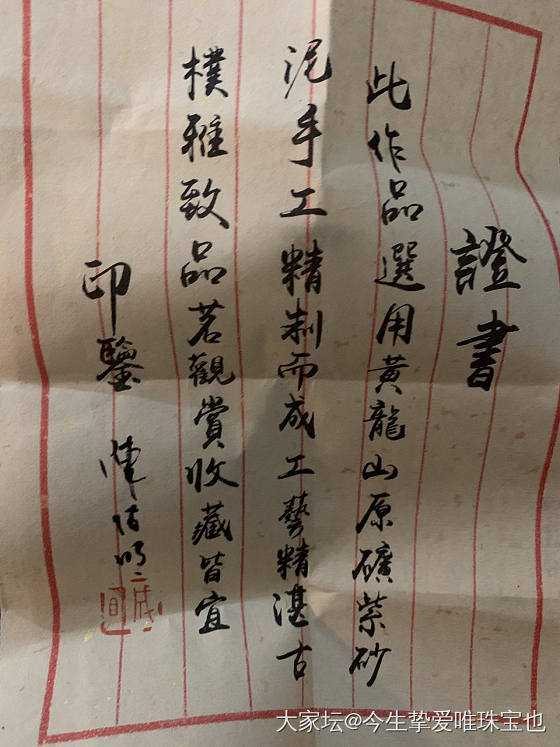 證書
此作品選用黃龍山原礦紫砂
泥手工精制而成工藝精湛古
樸雅致品茗觀賞收藏皆宜
印鑒
大家坛@今生挚爱唯珠宝也